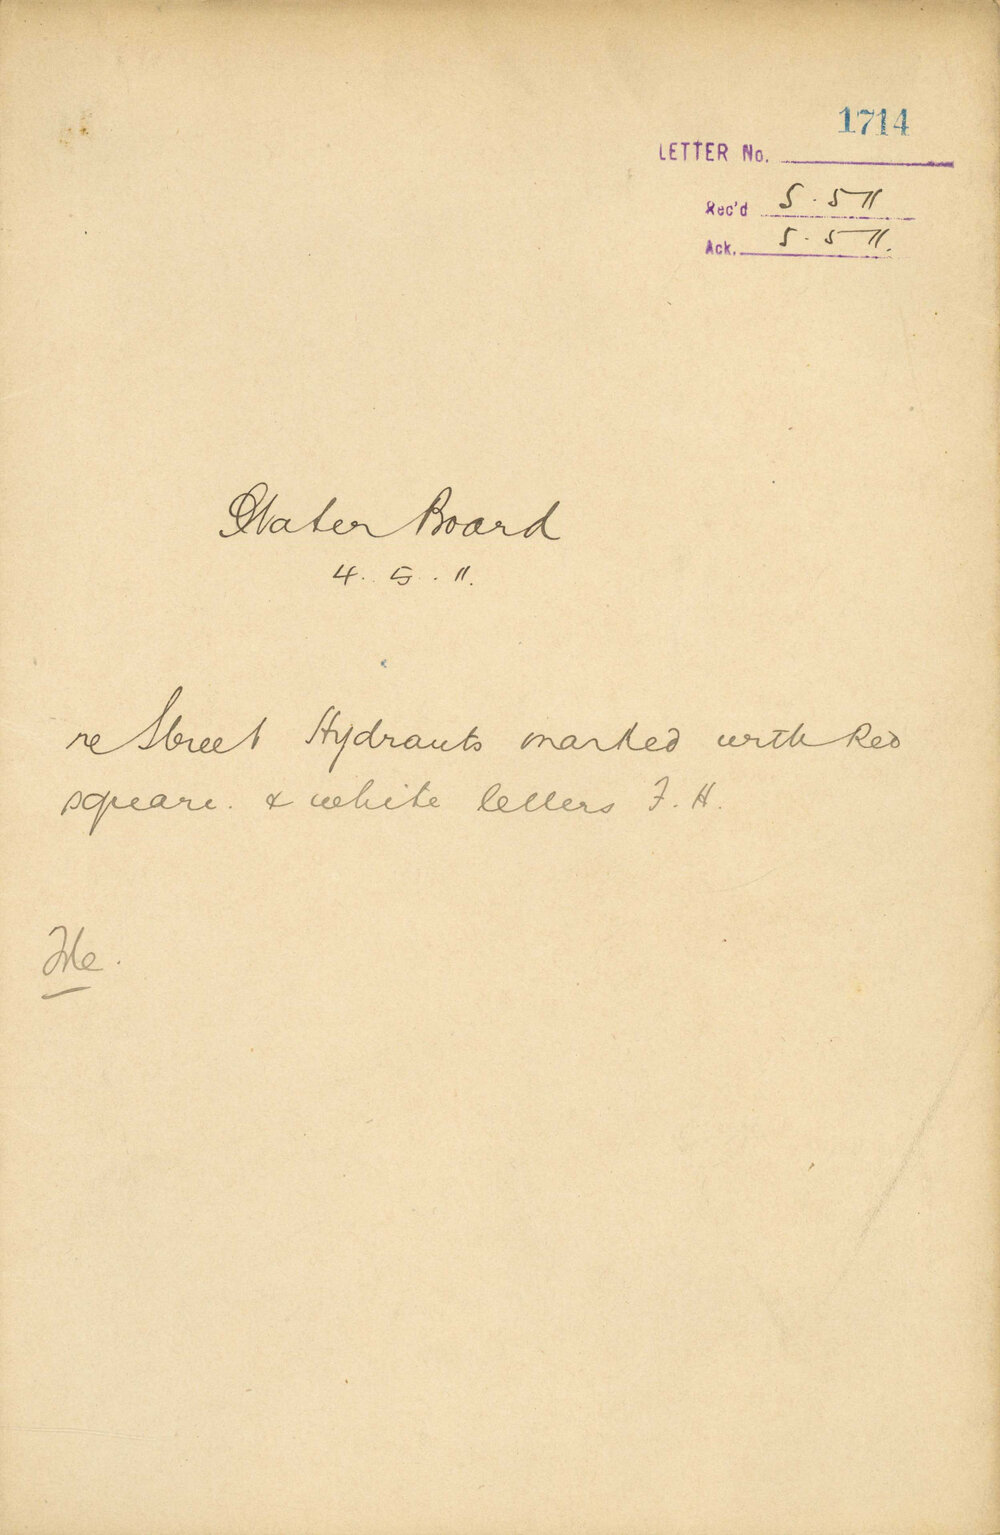 1714
LETTER No.
Rec'd 5.5.11
Ack. 5.5.11.
Water Board
4.5.11.
re Street Hydrants marked with Red
square. & white letters F.H.
File.